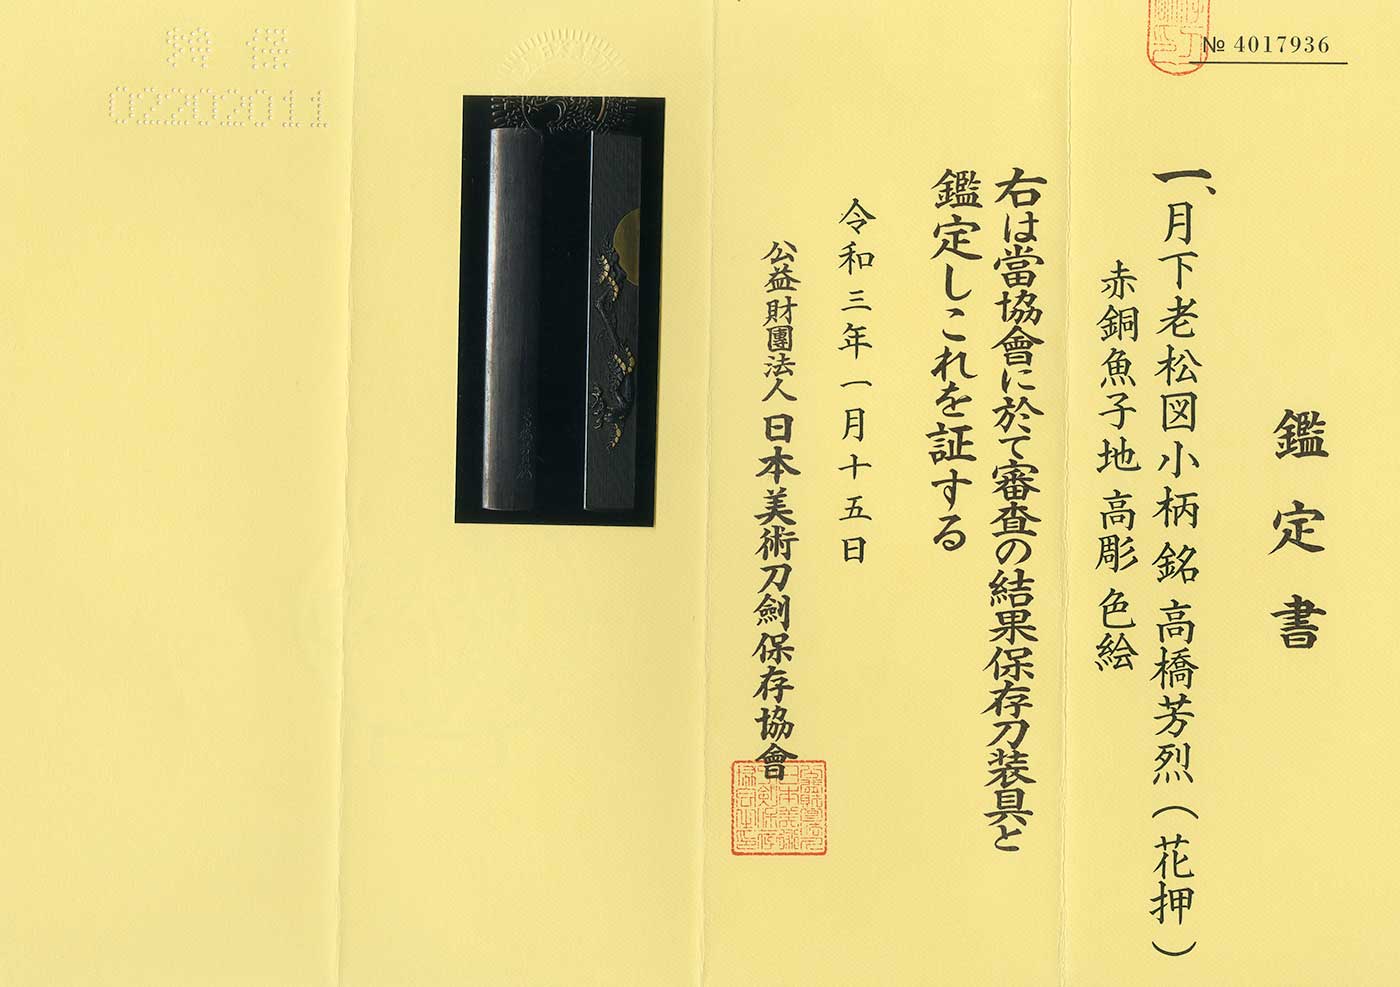 № 4017936
鑑定書
一、月下老松図小柄 銘 高橋芳烈（花押）
赤銅魚子地 高彫 色絵
右は當協會に於て審査の結果保存刀装具と
鑑定しこれを証する
令和三年一月十五日
公益財團法人 日本美術刀劍保存協會
02202011